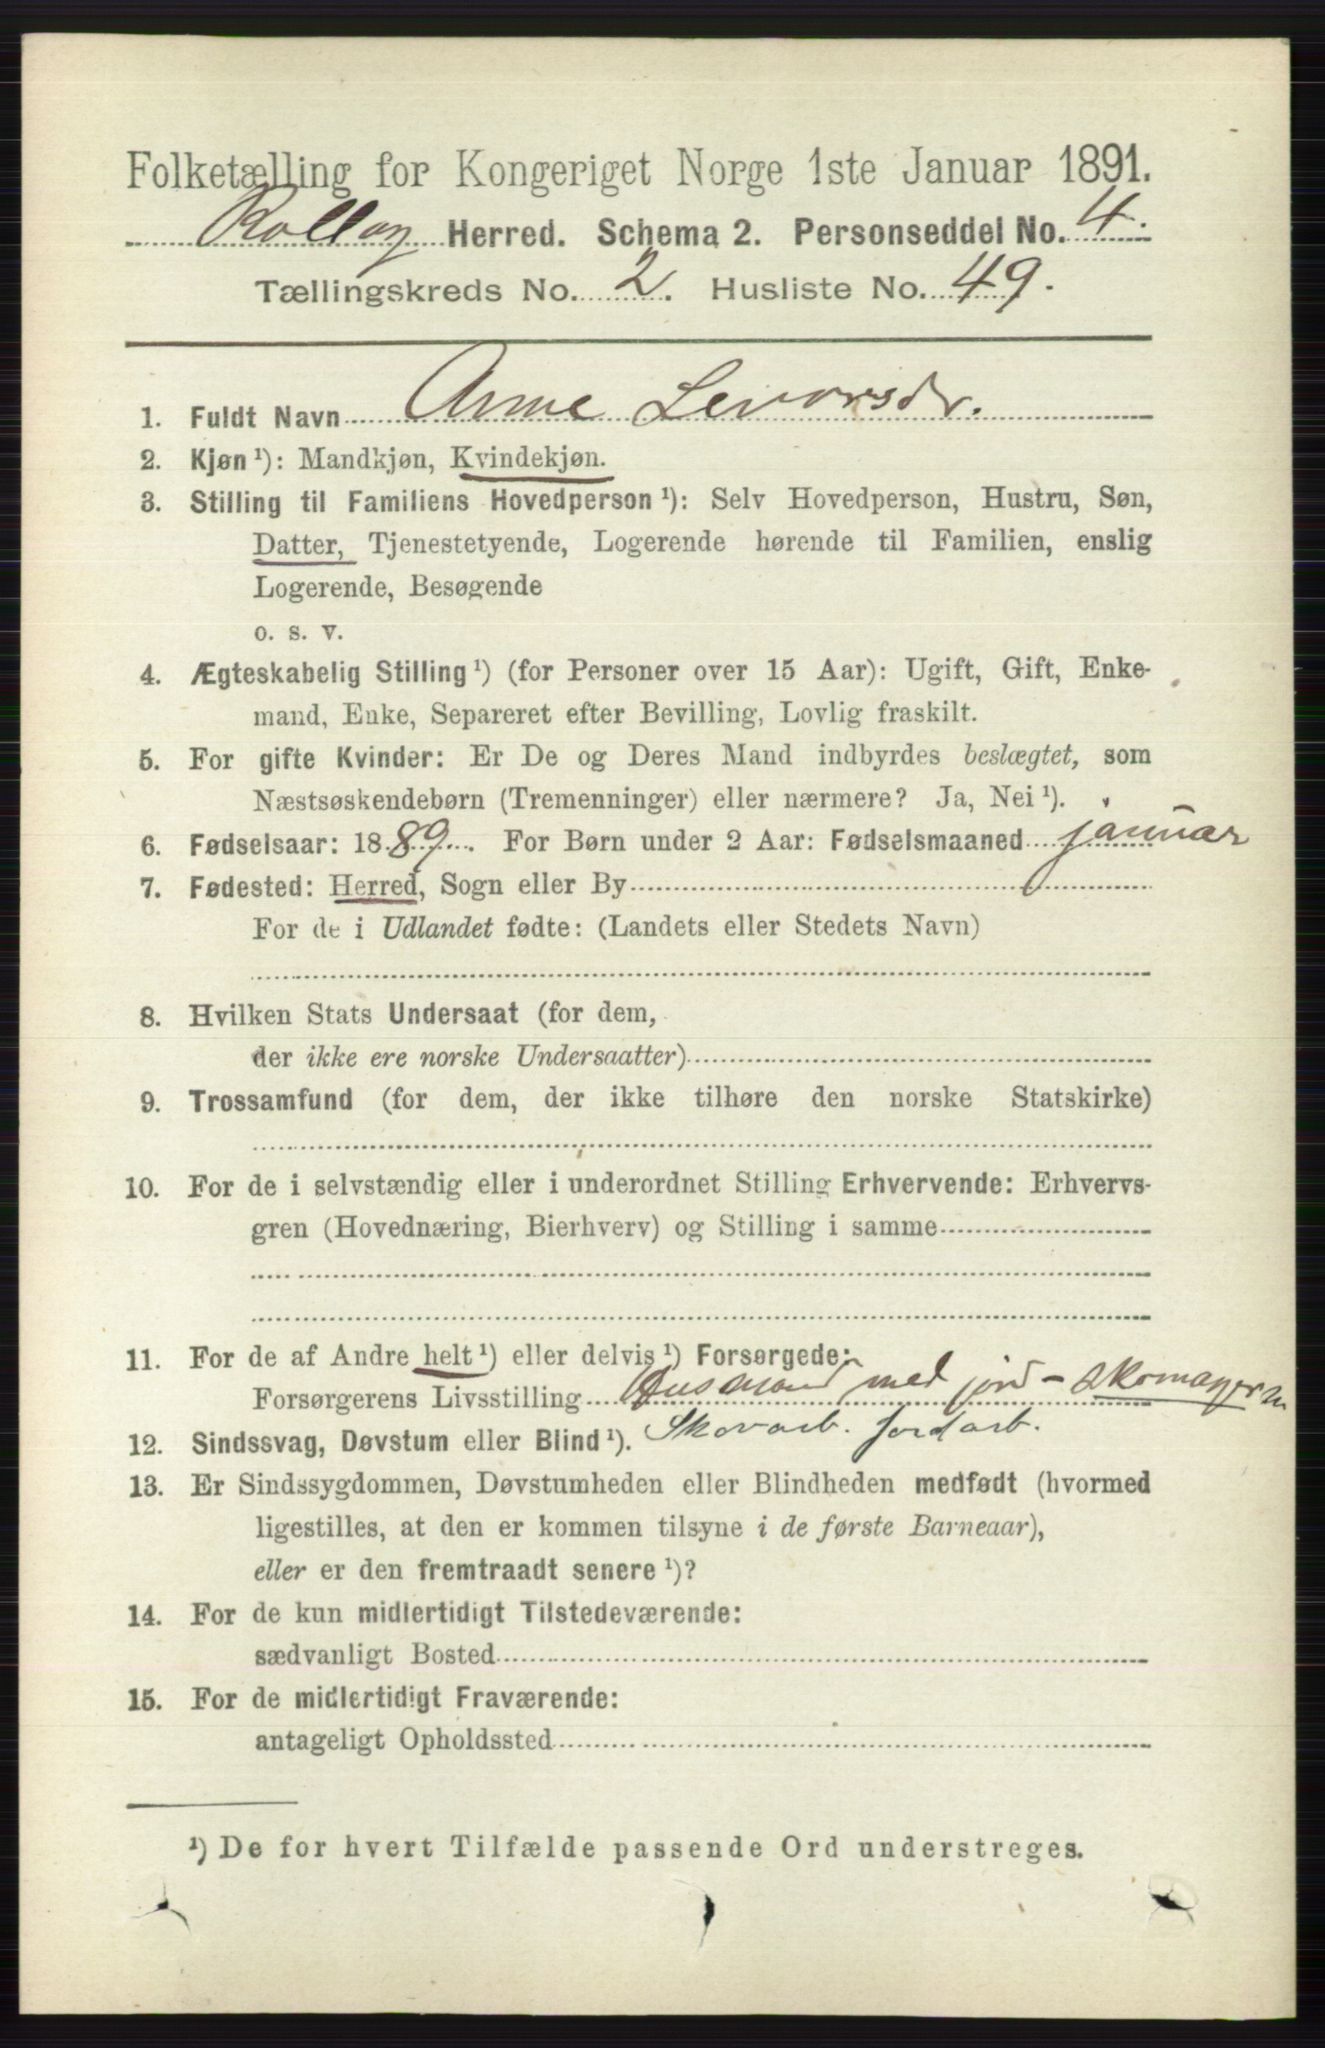 Folketælling for Kongeriget Norge 1ste Januar 1891.
Rollag Herred. Schema 2. Personseddel No. 4.
Tællingskreds No. 2. Husliste No. 49.
1. Fuldt Navn Anne Levorsdr.
2. Kjøn ¹): Mandkjøn, Kvindekjøn.
3. Stilling til Familiens Hovedperson ¹): Selv Hovedperson, Hustru, Søn,
Datter, Tjenestetyende, Logerende hørende til Familien, enslig
Logerende, Besøgende
o. s. v.
4. Ægteskabelig Stilling ¹) (for Personer over 15 Aar): Ugift, Gift, Enke-
mand, Enke, Separeret efter Bevilling, Lovlig fraskilt.
5. For gifte Kvinder: Er De og Deres Mand indbyrdes beslægtet, som
Næstsøskendebørn (Tremenninger) eller nærmere? Ja, Nei ¹).
6. Fødselsaar: 1889. For Børn under 2 Aar: Fødselsmaaned januar
7. Fødested: Herred, Sogn eller By
For de i Udlandet fødte: (Landets eller Stedets Navn)
8. Hvilken Stats Undersaat (for dem,
der ikke ere norske Undersaatter)
9. Trossamfund (for dem, der ikke tilhøre den norske Statskirke)
10. For de i selvstændig eller i underordnet Stilling Erhvervende: Erhvervs-
gren (Hovednæring, Bierhverv) og Stilling i samme
11. For de af Andre helt ¹) eller delvis ¹) Forsørgede:
Forsørgerens Livsstilling Husmand med jord - skomager
12. Sindssvag, Døvstum eller Blind ¹). Skovarb. jordarb.
13. Er Sindssygdommen, Døvstumheden eller Blindheden medfødt (hvormed
ligestilles, at den er kommen tilsyne i de første Barneaar),
eller er den fremtraadt senere ¹)?
14. For de kun midlertidigt Tilstedeværende:
sædvanligt Bosted
15. For de midlertidigt Fraværende:
antageligt Opholdssted
¹) De for hvert Tilfælde passende Ord understreges.